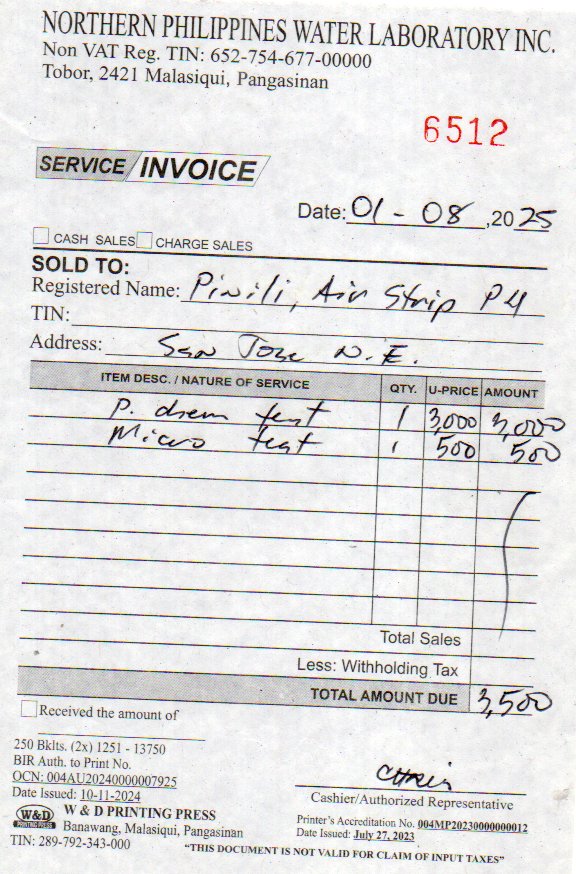 NORTHERN PHILIPPINES WATER LABORATORY INC.
Non VAT Reg. TIN: 652-754-677-00000
Tobor, 2421 Malasiqui, Pangasinan
6512
SERVICE INVOICE
Date: 01 - 08, 2025
CASH SALES CHARGE SALES
SOLD TO:
Registered Name: Pinili, Air Strip P4
TIN:
Address: San Jose N.E.
ITEM DESC. / NATURE OF SERVICE QTY. U-PRICE AMOUNT
P. chem test 1 3,000 3,000
Micro test 1 500 500
Total Sales
Less: Withholding Tax
TOTAL AMOUNT DUE 3,500
Received the amount of
250 Bklts. (2x) 1251 - 13750
BIR Auth. to Print No.
OCN: 004AU20240000007925
Date Issued: 10-11-2024
W&D PRINTING PRESS
W & D PRINTING PRESS
Banawang, Malasiqui, Pangasinan
TIN: 289-792-343-000
Chris
Cashier/Authorized Representative
Printer's Accreditation No. 004MP20230000000012
Date Issued: July 27, 2023
"THIS DOCUMENT IS NOT VALID FOR CLAIM OF INPUT TAXES"